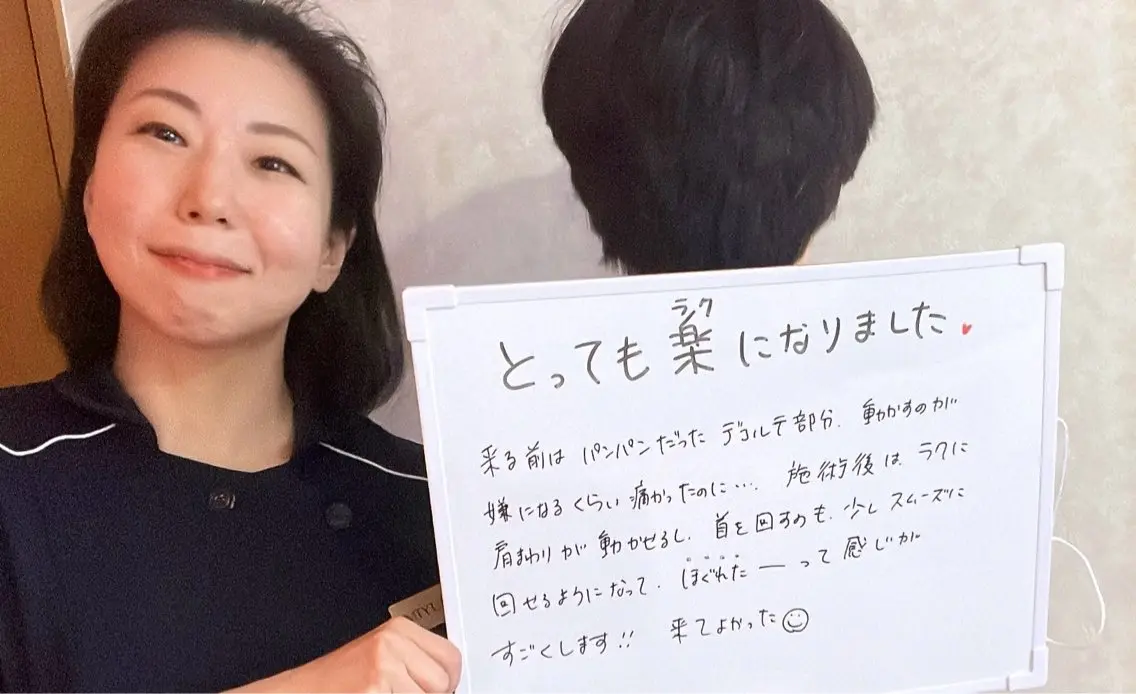 ラク
とっても楽になりました
来る前は パンパンだった デコルテ部分、動かすのが
嫌になるくらい 痛かったのに…. 施術後は、ラクに
肩まわりが 動かせるし、首を回すのも、少し スムーズに
回せるようになって、ほぐれたーって 感じが
すごくします!! 来てよかった